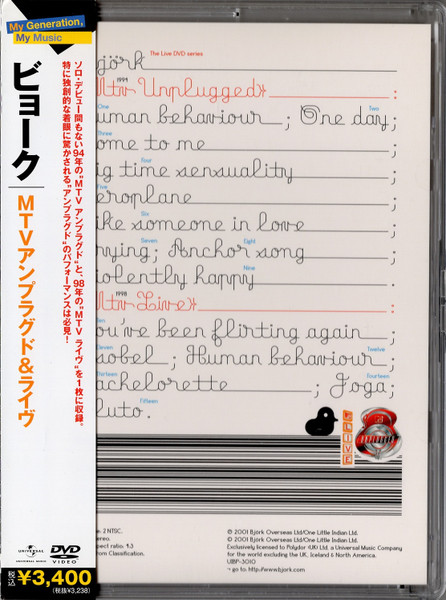 My Generation,
My Music
ビョーク
MTVアンプラグド&ライヴ
ソロ・デビュー間もない94年の"MTV アンプラグド"と、98年の"MTV ライヴ"を1枚に収録。
特に独創的な着眼に驚かされる"アンプラグド"のパフォーマンスは必見!
UNIVERSAL
DVD
VIDEO
税込 ¥3,400
(税抜¥3,238)
The Live DVD series
jörk
1994
Mtv Unplugged
:
One
Two
uman behaviour ; One day;
Three
ome to me ;
four
ig time sensuality ;
Five
eroplane ;
Six
ike someone in love ;
Seven
Eight
rying; Anchor song ;
Nine
iolently happy .
1998
Mtv Live
:
Ten
ou've been flirting again ;
Eleven
Twelve
sobel ; Human behaviour ;
Thirteen
fourteen
achelorette ; Joga;
Fifteen
luto.
LIVE
: 2 NTSC.
tereo.
ect ratio: 4:3
from Classification.
© 2001 Björk Overseas Ltd/One Little Indian Ltd.
© 2001 Björk Overseas Ltd/One Little Indian Ltd.
Exclusively licensed to Polydor (UK) Ltd. a Universal Music Company
for the world excluding the UK, Iceland & North America.
UIBP-3010
~ go to: http://www.bjork.com